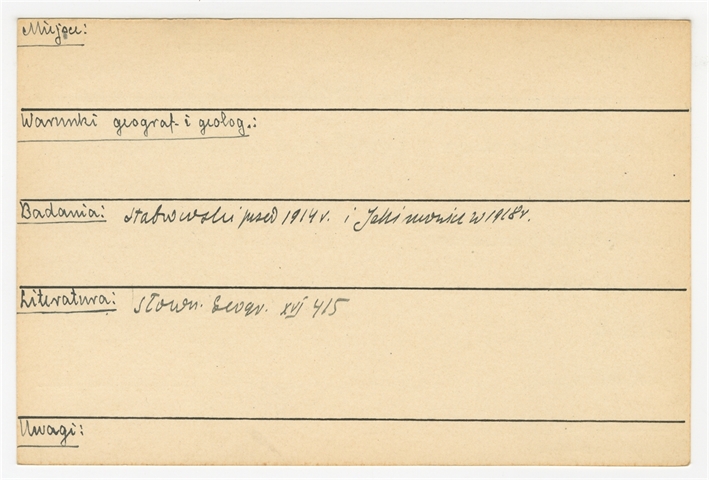 Miejsce:
Warunki geograf. i geolog.:
Badania: Stabrowski przed 1914 r. i Jakimowicz w 1918 r.
Literatura: Słown. Geogr. XVI 415
Uwagi: